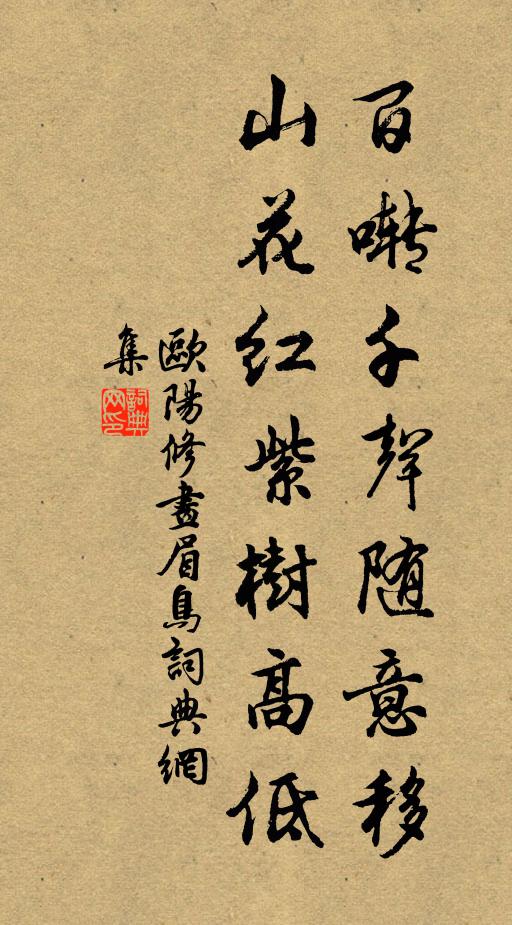 百囀千聲随意移
山花红紫樹高低
歐陽修畫眉鳥詞典網
集
詞典
网印